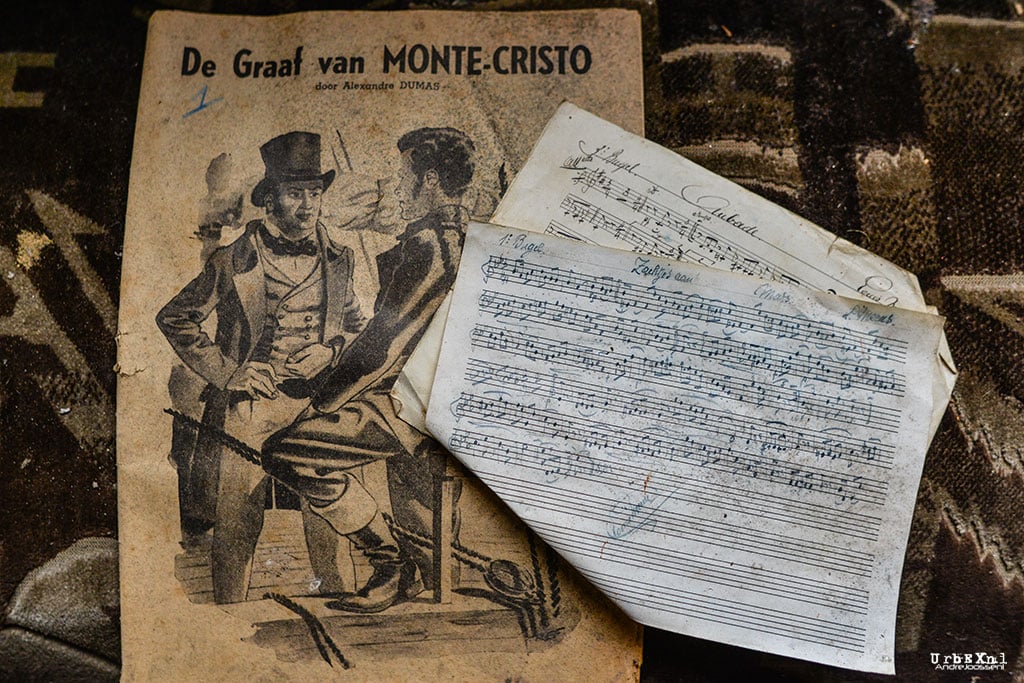 De Graaf van MONTE-CRISTO
door Alexandre DUMAS
1
1e Bugel
Aubade
1e Bugel
UrbEXnl
AndreJoosse.nl